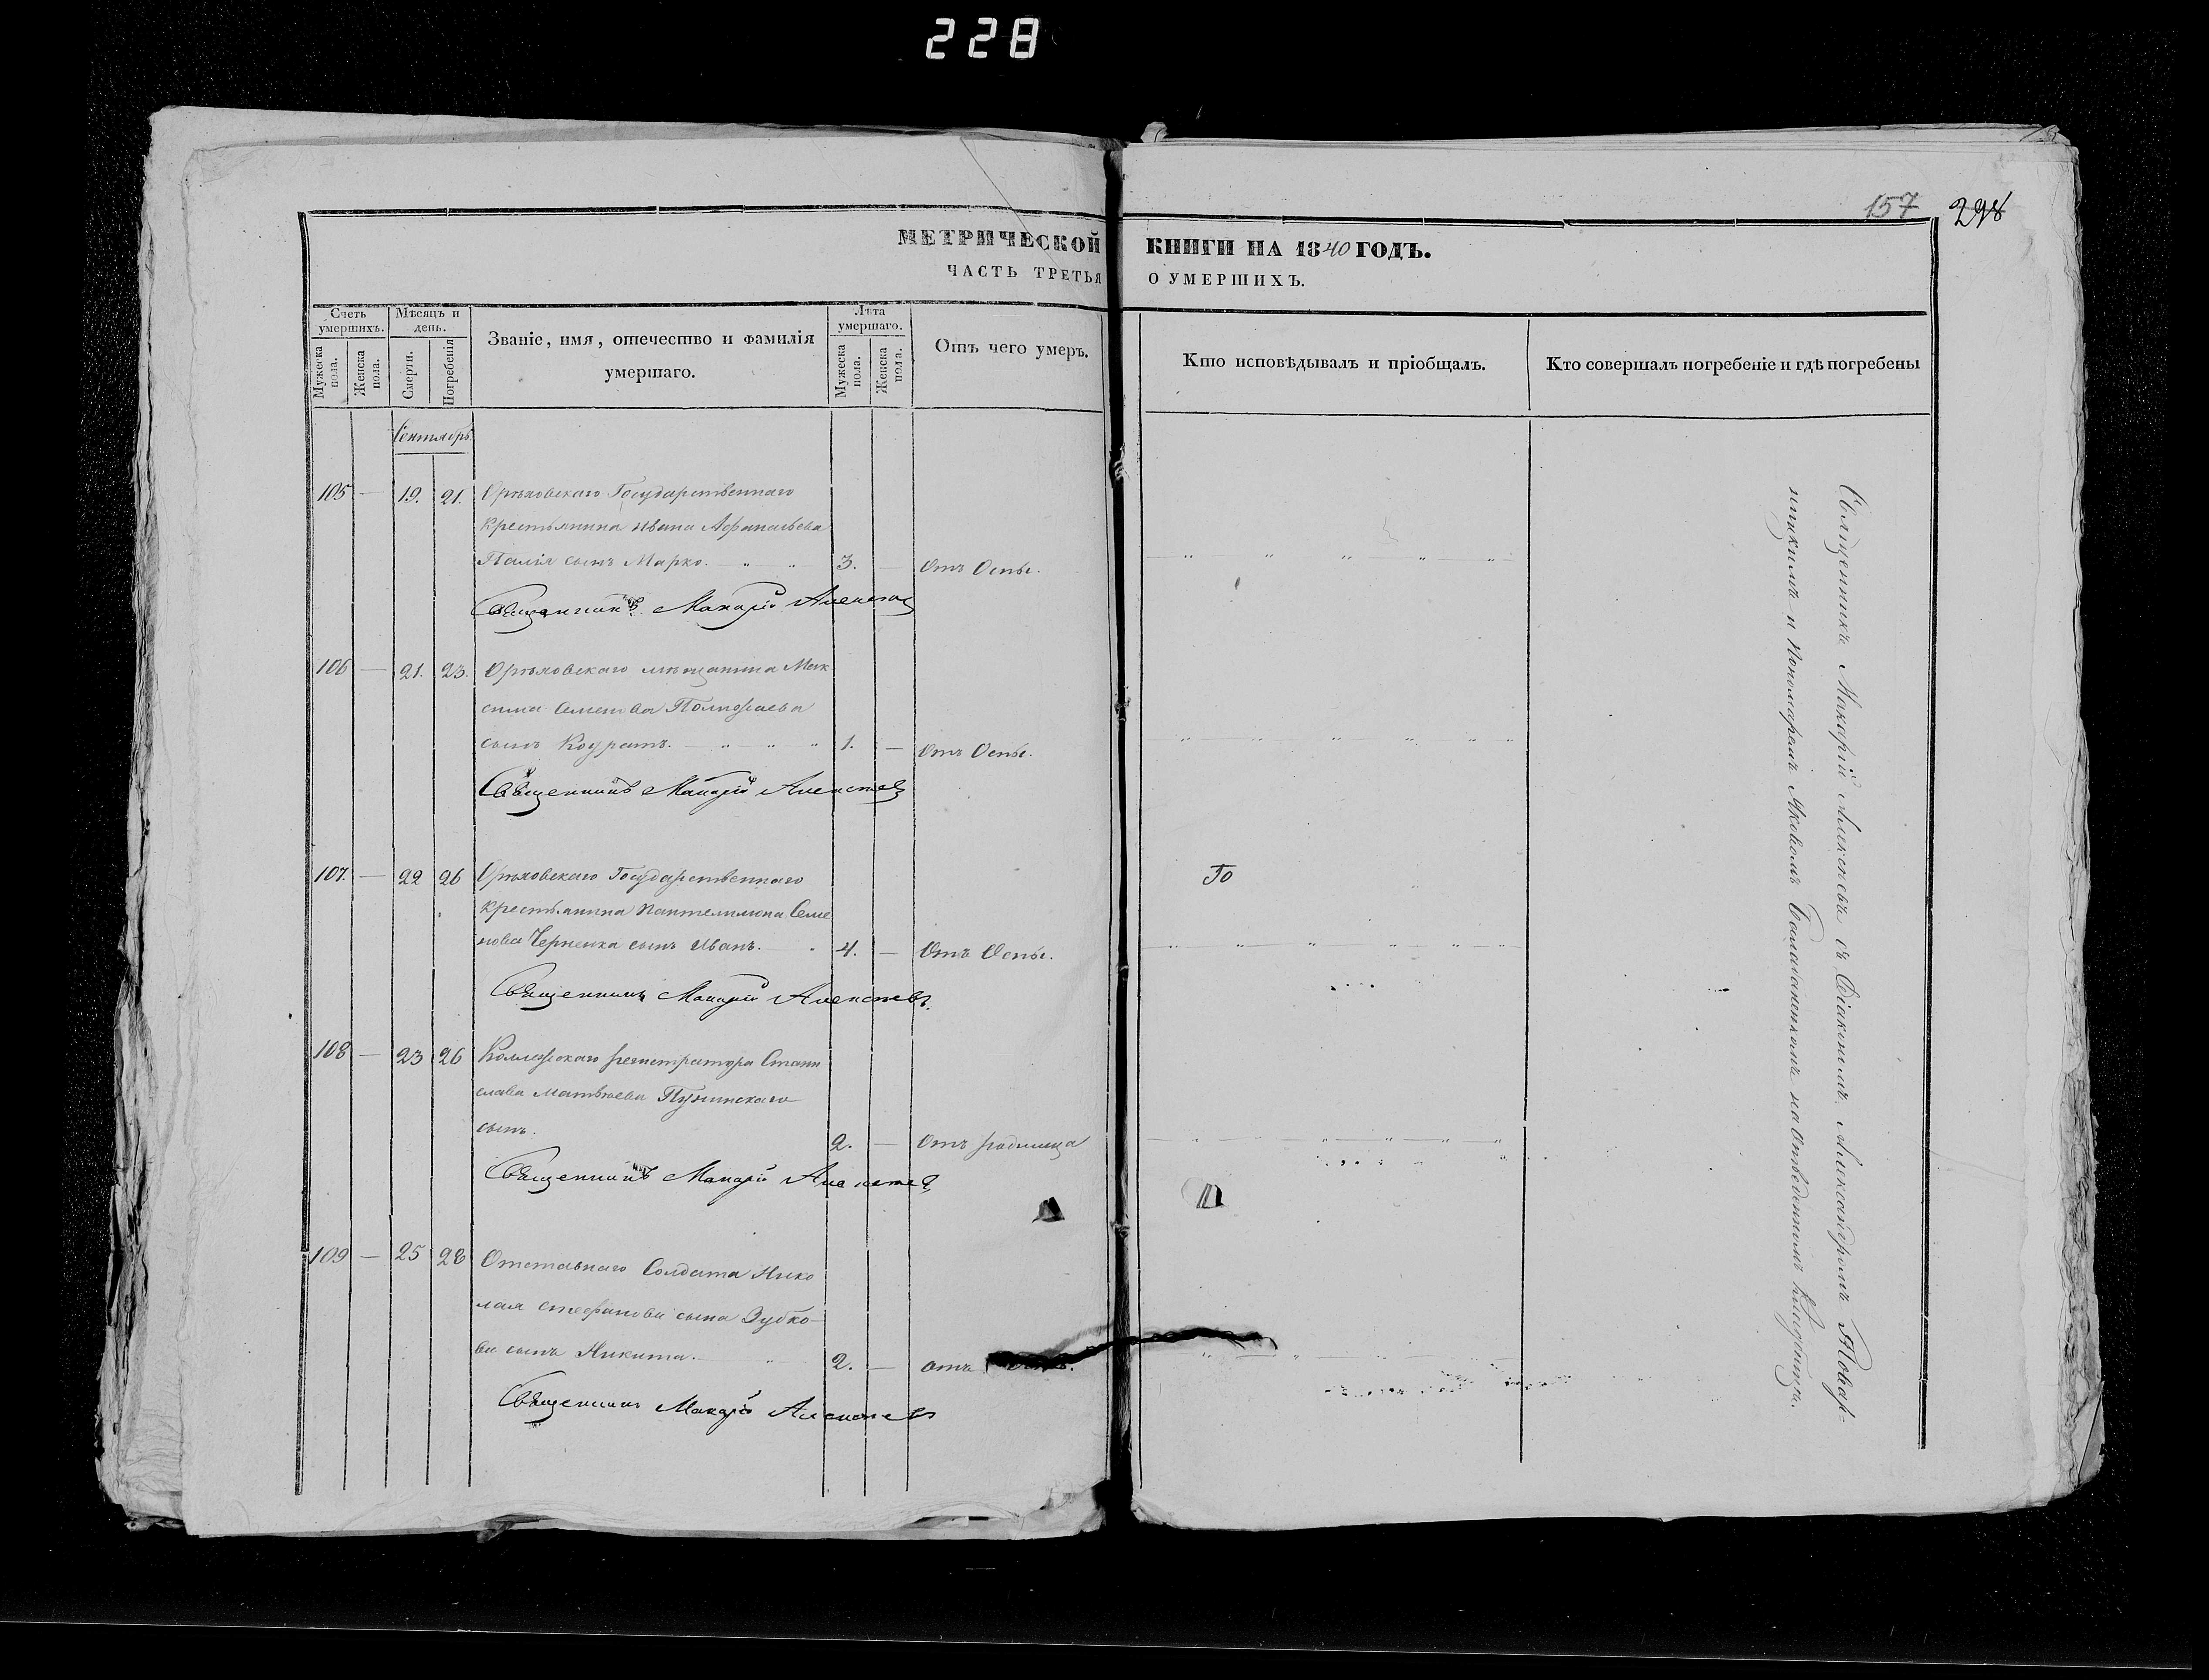 228
157 298
МЕТРИЧЕСКОЙ КНИГИ НА 1840 ГОДЪ.
ЧАСТЬ ТРЕТЬЯ О УМЕРШИХЪ.
Счетъ умершихъ.
Мужеска пола.
Женска пола.
Мѣсяцъ и день.
Смерти.
Погребенія
Званіе, имя, отечество и фамилія
умершаго.
Лѣта умершаго.
Мужеска пола.
Женска пола.
Отъ чего умеръ.
Кто исповѣдывалъ и пріобщалъ.
Кто совершалъ погребеніе и гдѣ погребены
Сентябрь
105 — 19. 21. Орѣховскаго Государственнаго
крестьянина Ивана Афанасьева
Палія сынъ Марко. 3. — Отъ Оспы.
Священникъ Макарій Алексѣевъ
106 — 21. 23. Орѣховскаго мѣщанина Мак
сима Семенова
сынъ 1. — Отъ Оспы.
Священникъ Макарій Алексѣевъ
107. — 22 26 Орѣховскаго Государственнаго
крестьянина Пантелимона Семе
нова Черненка сынъ Иванъ. 4. — Отъ Оспы.
Священникъ Макарій Алексѣевъ
108 — 23 26 Коллежскаго регистратора Стани
слава Матвѣева
сынъ. 2. — Отъ родимца
Священникъ Макарій Алексѣевъ
109 — 25 28 Отставнаго Солдата Нико
лая Стефанова сына Зубко-
ва сынъ Никита. 2. — отъ
Священникъ Макарій Алексѣевъ
Священникъ Макарій Алексѣевъ съ Діакономъ Александромъ
и Пономаремъ Яковомъ на отведенномъ кладбищѣ.